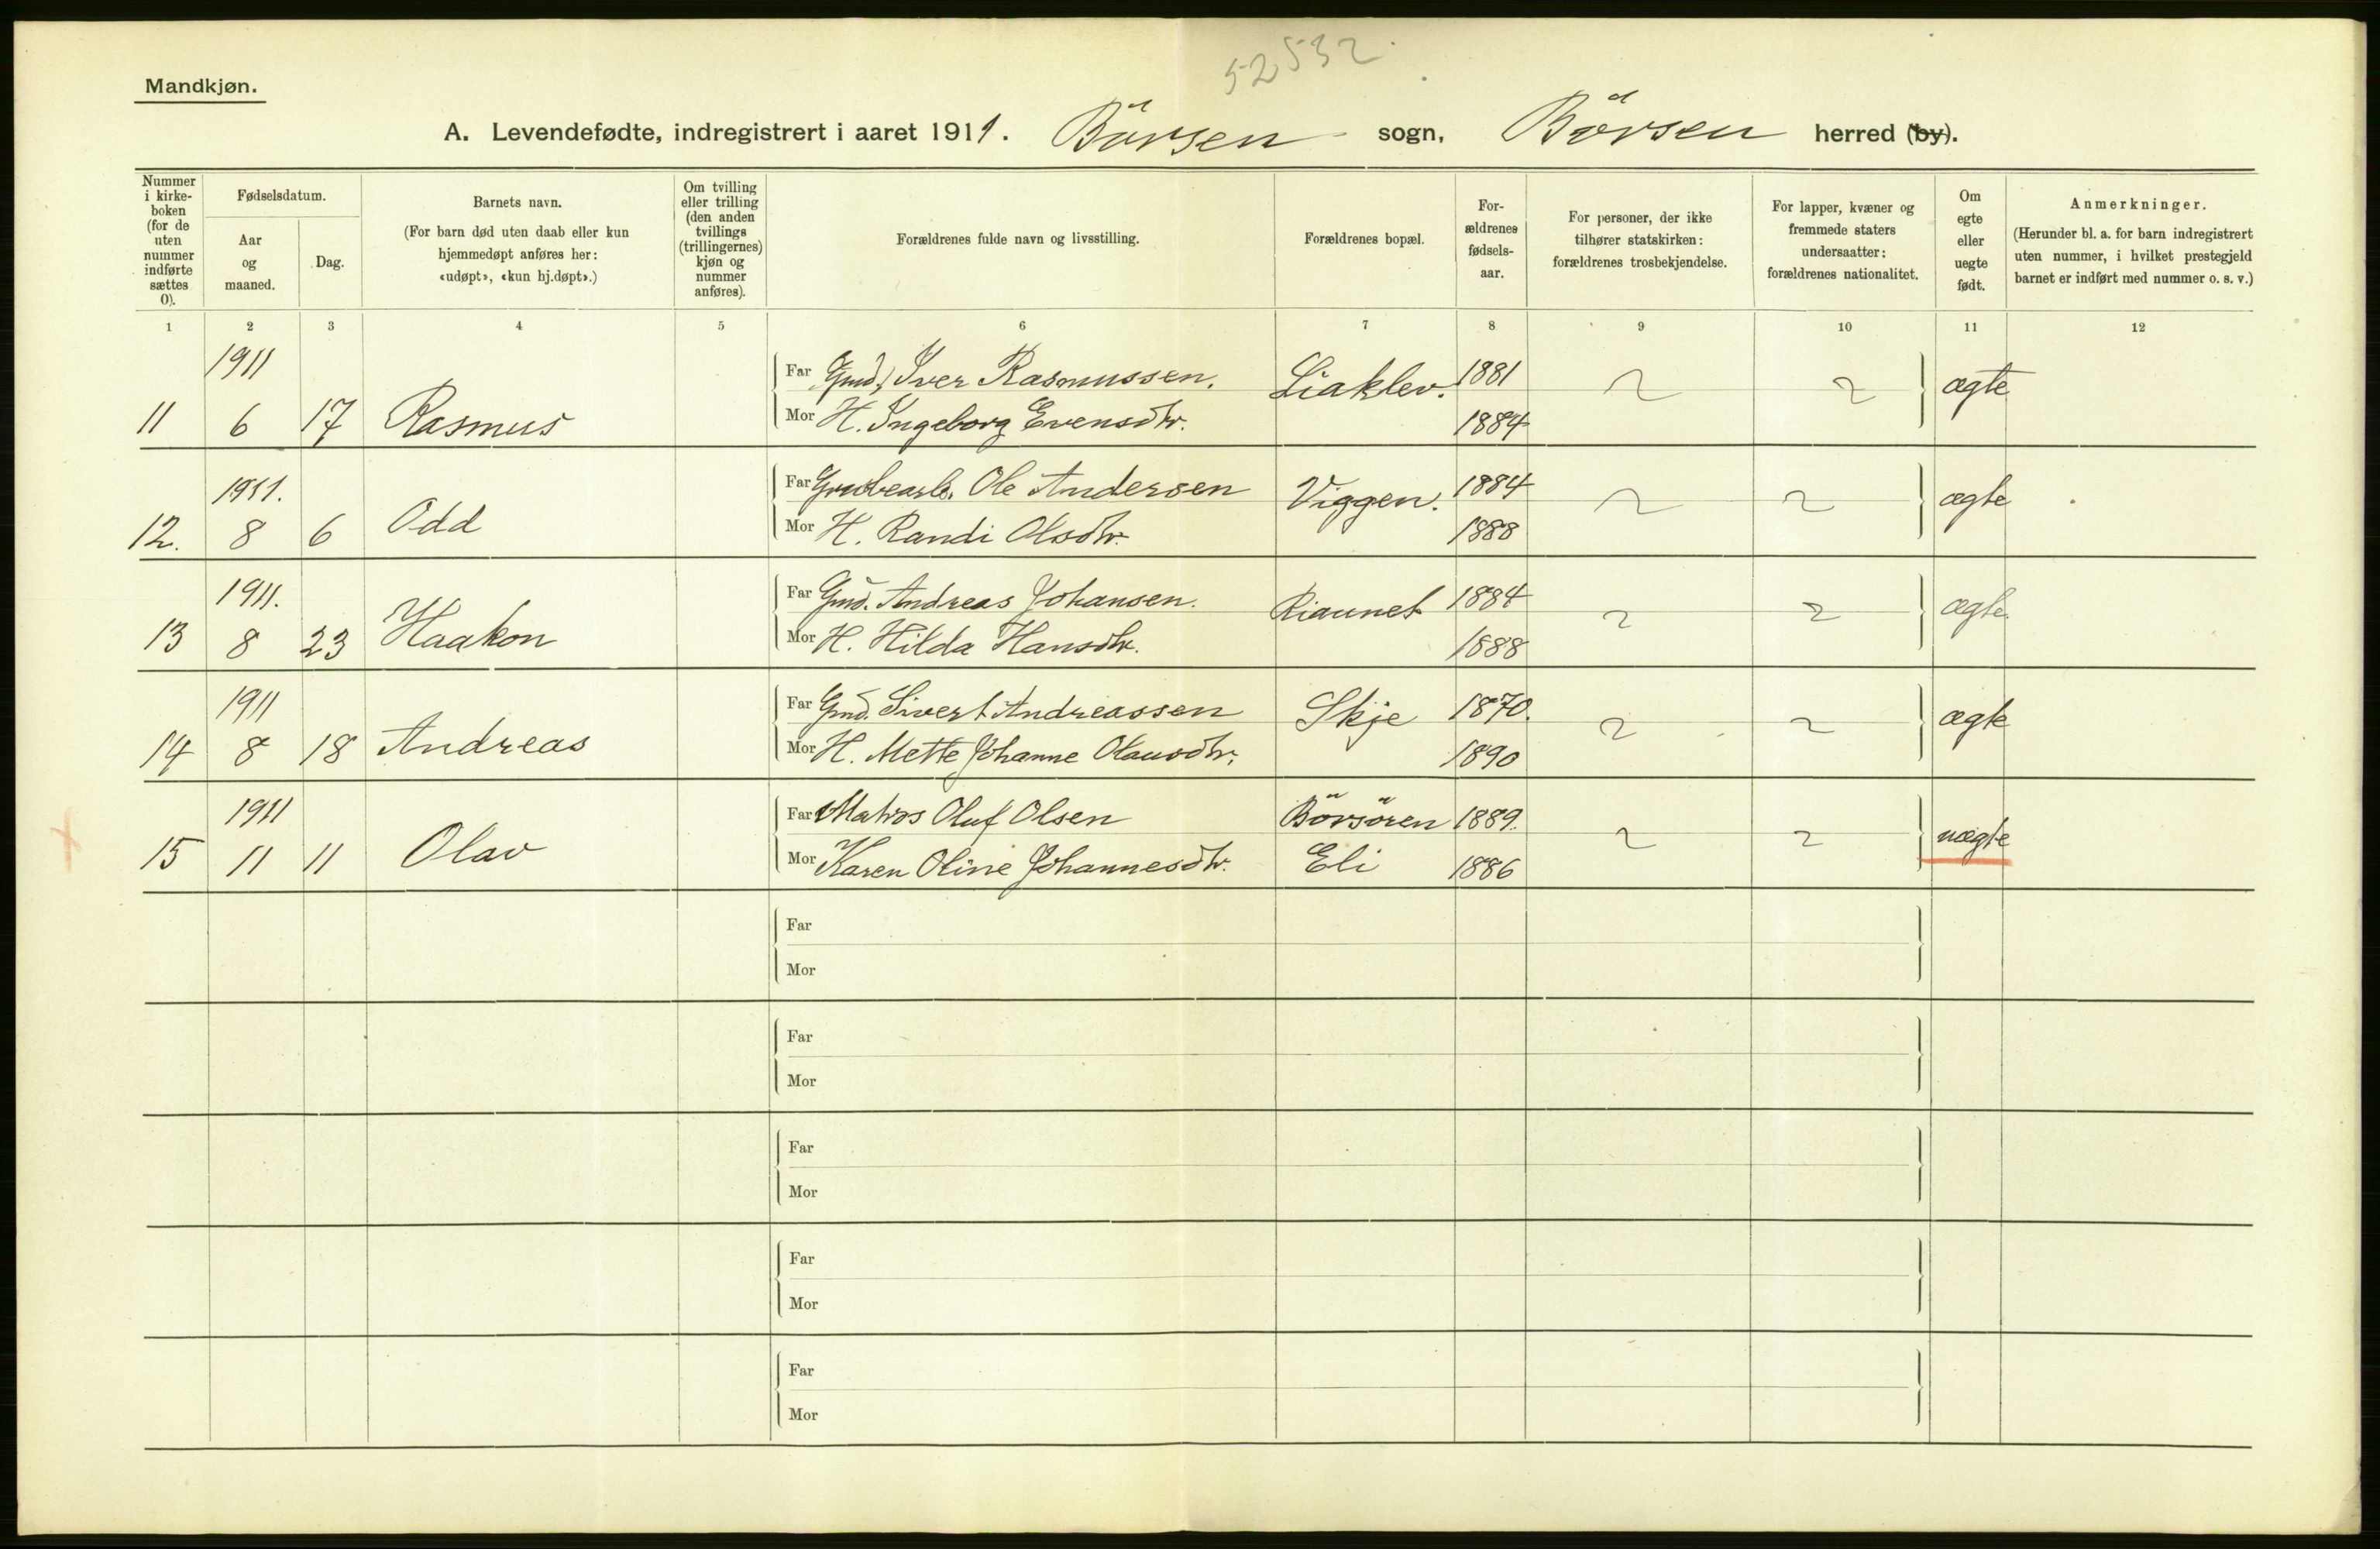 52532
Mandkjøn.
A. Levendefødte, indregistrert i aaret 1911. Börsen sogn, Börsen herred (by).
Nummer i kirke-boken (for de uten nummer indførte sættes 0).
Fødselsdatum.
Aar og maaned.
Dag.
Barnets navn.
(For barn død uten daab eller kun hjemmedøpt anføres her: «udøpt», «kun hj.døpt».)
Om tvilling eller trilling (den anden tvillings (trillingernes) kjøn og nummer anføres).
Forældrenes fulde navn og livsstilling.
Forældrenes bopæl.
For-ældrenes fødsels-aar.
For personer, der ikke tilhører statskirken: forældrenes trosbekjendelse.
For lapper, kvæner og fremmede staters undersaatter: forældrenes nationalitet.
Om egte eller uegte født.
Anmerkninger.
(Herunder bl. a. for barn indregistrert uten nummer, i hvilket prestegjeld barnet er indført med nummer o. s. v.)
1 2 3 4 5 6 7 8 9 10 11 12
1911 Far Gmd. Iver Rasmussen. Liaklev. 1881 ægte
11 6 17 Rasmus Mor H. Ingeborg Evensdtr. 1884
1911. Far Ole Andersen Viggen. 1884 ægte
12. 8 6 Odd Mor H. Randi Olsdtr. 1888
1911. Far Gmd. Andreas Johansen. Riaunet 1884 ægte.
13 8 23 Haakon Mor H. Hilda Hansdtr. 1888
1911 Far Gmd. Sivert Andreassen Skje 1870. ægte
14 8 18 Andreas Mor H. Mette Johanne Olausdtr. 1890
1911 Far Matros Oluf Olsen Börsören 1889. uægte
15 11 11 Olav Mor Karen Oline Johannesdtr. Eli 1886
Far
Mor
Far
Mor
Far
Mor
Far
Mor
Far
Mor